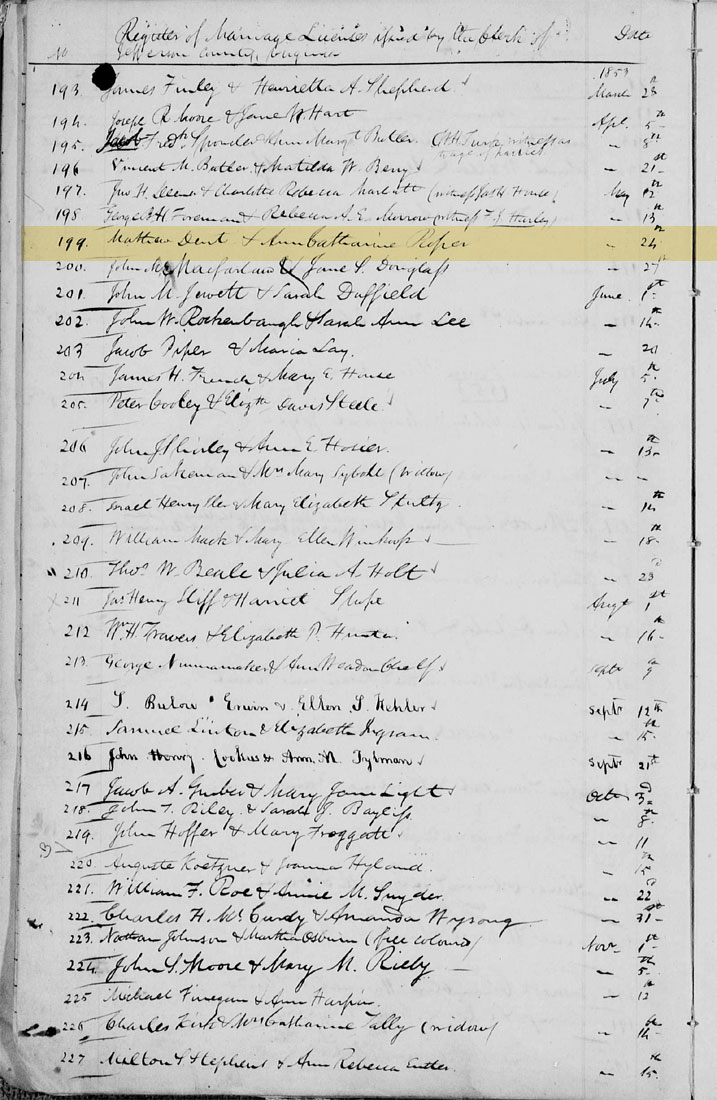 Register of Marriage Licenses issued by the Clerk of Date
No Jefferson County, Virginia
1853
193. James Finley & Henrietta A. Shepherd March 28th
194. Joseph R. Moore & Jane W. Hart Apl. 5th
195. Jacob Fredk. & Ann Margt. Butler. witness as " 8th
to age of parties
196 Vincent M. Butler & Matilda W. Berry " 21st
197. Jno. H. & Charlotte Rebecca (witness House) May 12th
198 George H. Foreman & Rebecca A. E. Morrow (witness Hurley) " 13th
199. Mathew Dent & Ann Catharine Roper " 24th
200. John Macfarland & Jane S. Douglass " 27th
201. John M. Jewett & Sarah Duffield June 1st
202. John W. Rockenbaugh & Sarah Ann Lee " 14th
203 Jacob Piper & Maria Lay. " 20
204 James H. French & Mary E. House July 5th
205. Peter Cooley & Elizth Davis Steele " 7th
206 John J. & Ann E. Hosier. " 13th
207. John Sakeman & Mrs Mary (widow) " "
208. Israel Henry & Mary Elizabeth Shultz " 14th
209. William Mack & Mary Ellen " 18th
210. Thos. W. Beale & Julia A. Holt " 23d
211 Jas Henry & Harriet Augt 1st
212 Wm. H. Travers & Elizabeth P. " 16th
213. George Nunnamaker & Ann Septr 9
214 S. Erwin & Ellen S. Kehler Septr 12th
215. Samuel Linton & Elizabeth " 15th
216 John Henry & Ann. M. Septr 21st
217 Jacob A. Gruber & Mary Jane Light Octr 3d
218. John T. Riley & Sarah J. Bayliss " 8th
219. John Hoffer & Mary Froggatt " 11
220. Auguste Koetzner & Joanna Hyland. " 15th
221. William F. Roe & Annie M. Snyder " 22d
222. Charles H. McCurdy & Amanda Wysong " 31st
223. Nathan Johnson & Martha Osburn (free coloured) Nov. 1st
224. John S. Moore & Mary M. Rieby " 5th
225 Michael Finegan & Ann Harper. " 12th
226 Charles Kirk & Mrs Catharine Tally (widow) " 14th
227 Milton S. Stephens & Ann Rebecca Entler. " 15th